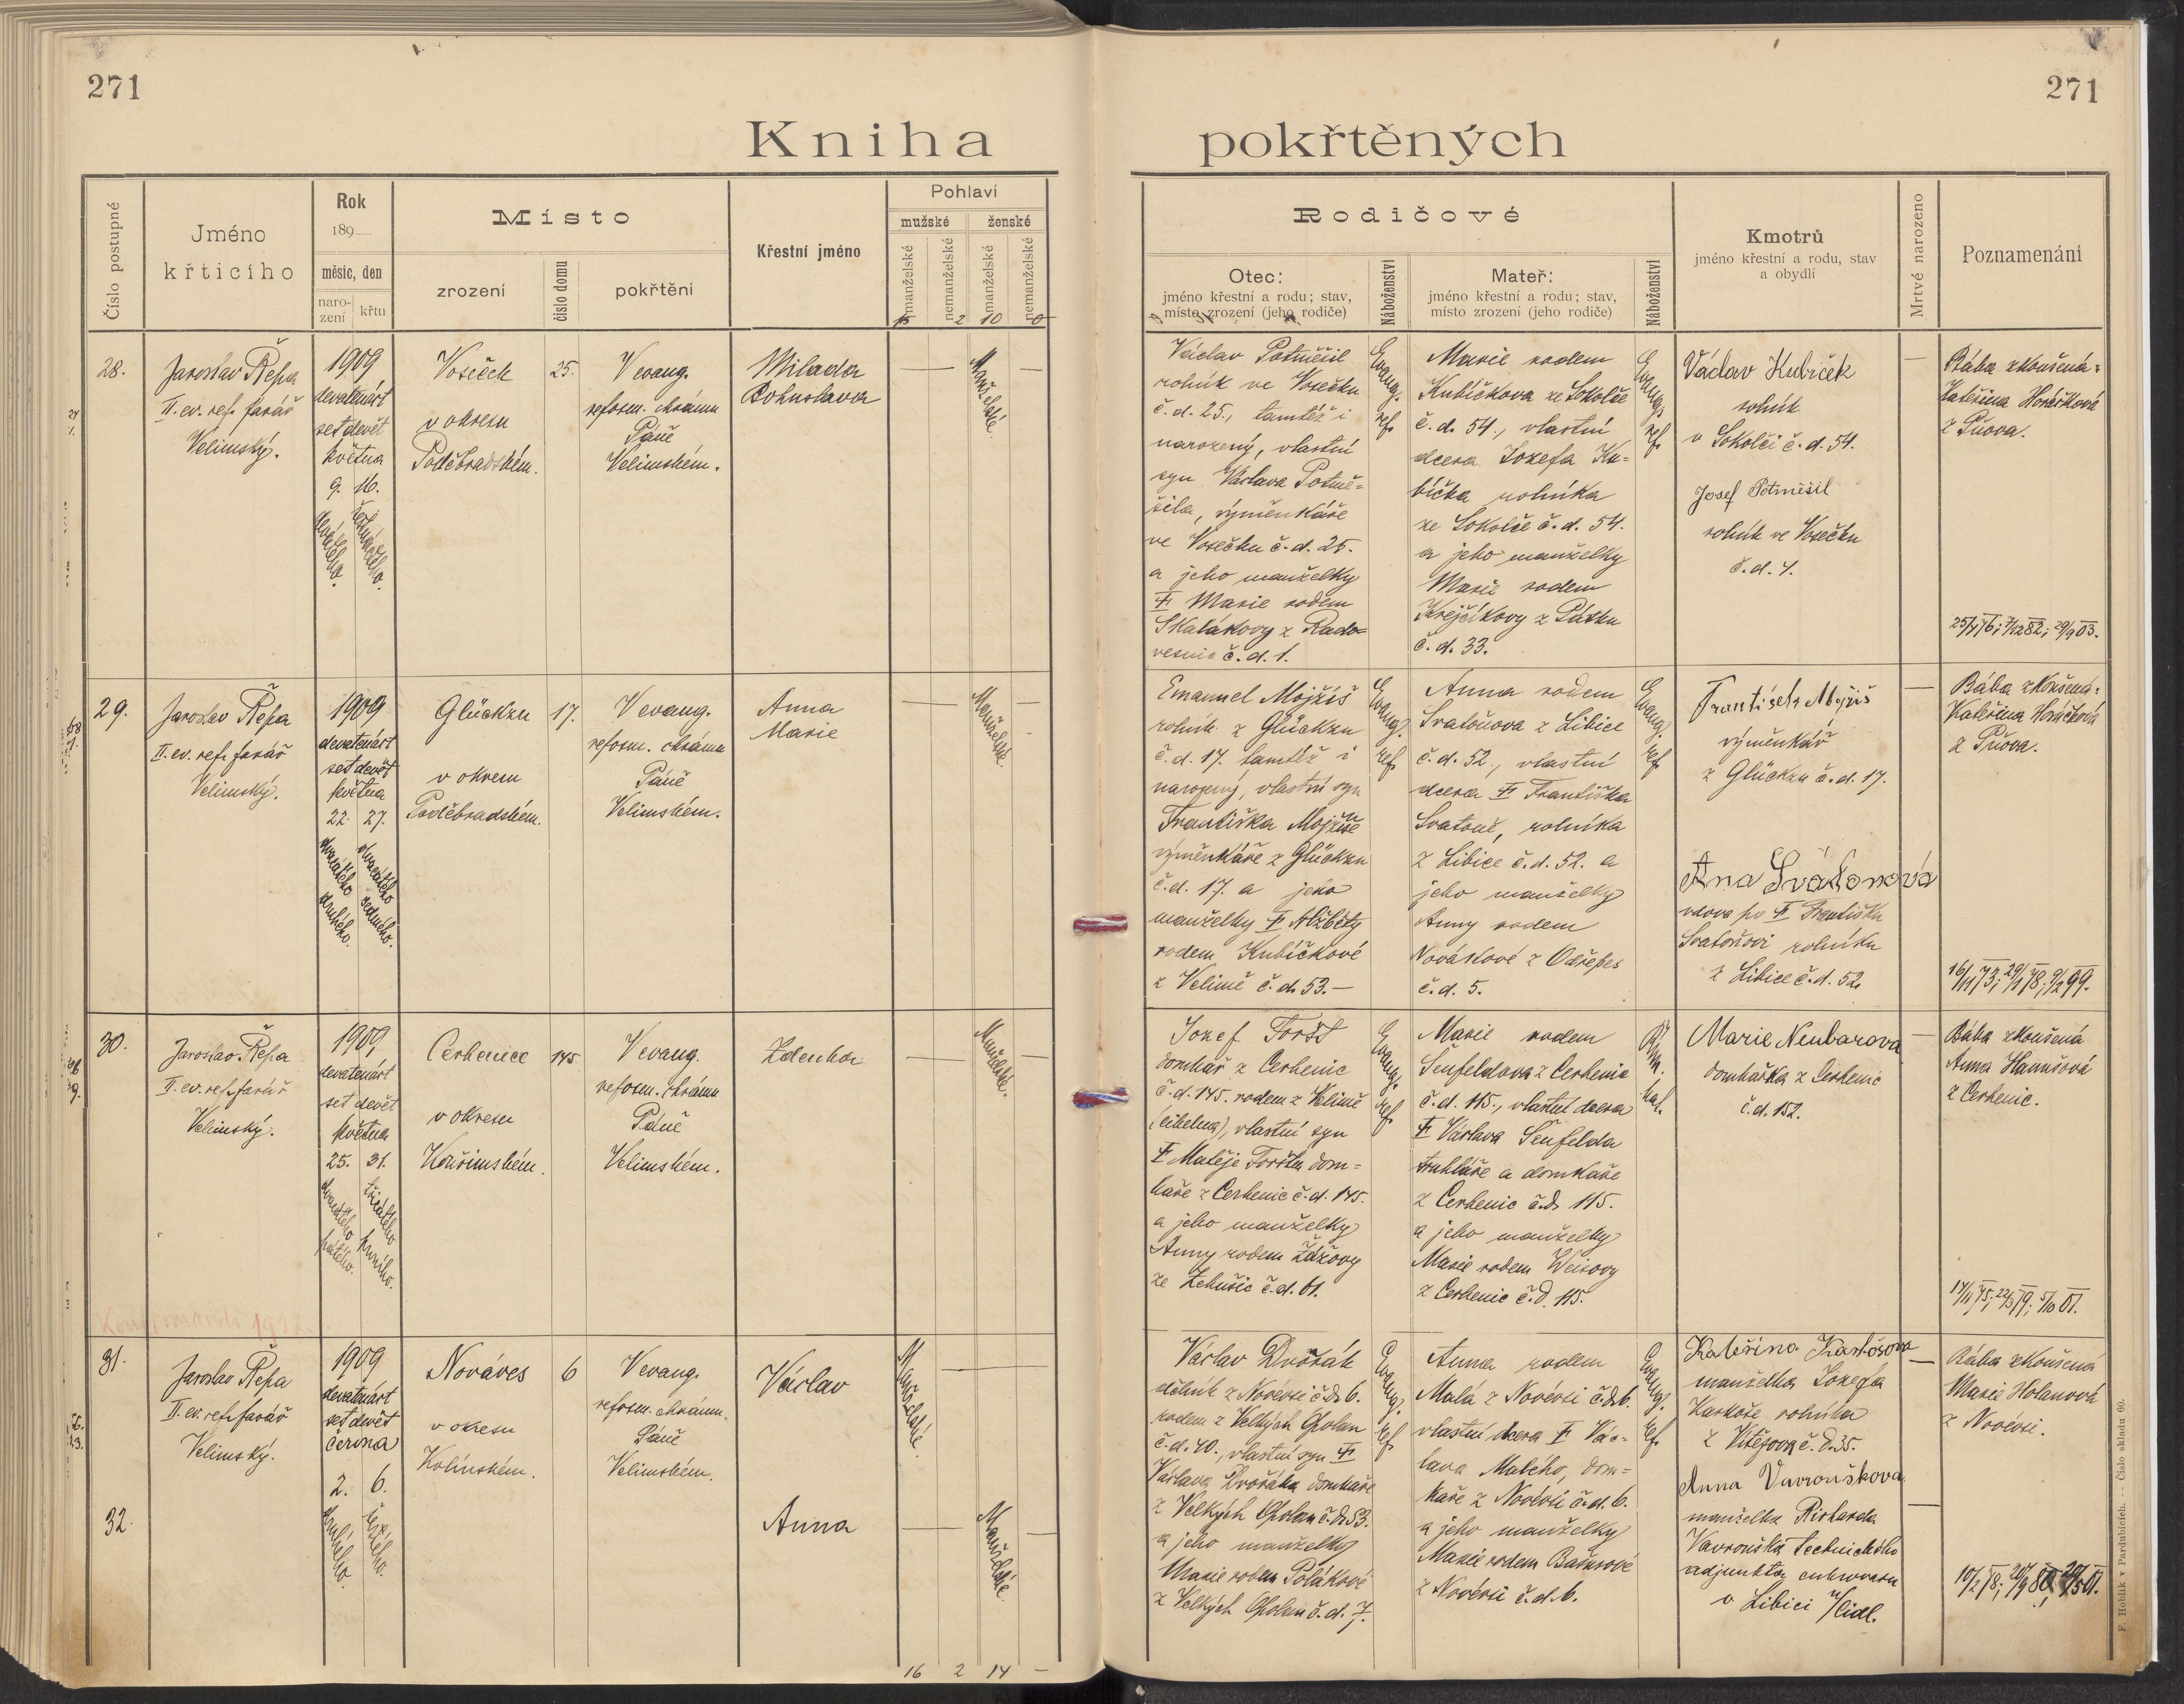 271
271
Kniha
pokřtěných
Číslo postupné
Jméno
křticího
Rok
189
měsíc, den
naro-
zení
křtu
Místo
zrození
číslo domu
pokřtění
Křestní jméno
Pohlaví
mužské
ženské
manželské
nemanželské
manželské
nemanželské
15 2 10 0
Rodičové
Otec:
jméno křestní a rodu; stav,
místo zrození (jeho rodiče)
Náboženství
Mateř:
jméno křestní a rodu; stav,
místo zrození (jeho rodiče)
Náboženství
Kmotrů
jméno křestní a rodu, stav
a obydlí
Mrtvé narozeno
Poznamenání
28.
Jaroslav Řepa
II. ev. ref. farář
Velimský.
1909
devatenáct
set devět
května
9. 16.
devátého
šestnáctého.
Voseček
v okresu
Poděbradském.
25.
V evang.
reform. chrámu
Páně
Velimském.
Milada
Bohuslava
—
—
Manželské.
—
Václav Potměšil
rolník ve Vosečku
č. d. 25., tamtéž i
narozený, vlastní
syn Václava Potmě-
šila, výměnkáře
ve Vosečku č. d. 25.
a jeho manželky
Marie rodem
Skalákovy z Rado-
vesnic č. d. 1.
Evang. ref.
Marie rodem
Kubíčkova ze Sokolče
č. d. 54., vlastní
dcera Jozefa Ku-
bíčka rolníka
ze Sokolče č. d. 54.
a jeho manželky
Marie rodem
Krejčíkovy z Pátku
č. d. 33.
Evang. ref.
Václav Kubíček
rolník
v Sokolči č. d. 54.
Josef Potměšil
rolník ve Vosečku
č. d. 4.
—
Bába zkoušená:
Kateřina Horáčková
z Pňova.
29.
Jaroslav Řepa
II. ev. ref. farář
Velimský.
1909
devatenáct
set devět
května
22. 27.
dvacátého druhého.
dvacátého sedmého.
Glückzu
v okresu
Poděbradském.
17.
V evang.
reform. chrámu
Páně
Velimském.
Anna
Marie
—
—
Manželské.
—
Emanuel Mojžíš
rolník z Glückzu
č. d. 17. tamtéž i
narozený, vlastní syn
Františka Mojžíše
výměnkáře z Glückzu
č. d. 17. a jeho
manželky Alžběty
rodem Kubíčkové
z Velimě č. d. 53.—
Evang. ref.
Anna rodem
Svatoňova z Libice
č. d. 52., vlastní
dcera Františka
Svatoně, rolníka
z Libice č. d. 52. a
jeho manželky
Anny rodem
Novákové z Odřepes
č. d. 5.
Evang. ref.
František Mojžíš
výměnkář
z Glückzu č. d. 17.
Ana Svatonová
vdova po Františku
Svatoňovi rolníku
z Libice č. d. 52.
—
Bába zkoušená:
Kateřina Horáčková
z Pňova.
30.
Jaroslav Řepa
II. ev. ref. farář
Velimský.
1909
devatenáct
set devět
května
25. 31.
dvacátého pátého.
třicátého prvního.
Cerhenice
v okresu
Kouřimském.
145
V evang.
reform. chrámu
Páně
Velimském.
Zdenka
—
—
Manželské.
—
Jozef Foršt
domkář z Cerhenic
č. d. 145. rodem z Velimě
(cihelna), vlastní syn
Matěje Foršta dom-
káře z Cerhenic č. d. 145.
a jeho manželky
Anny rodem
ze Žehušic č. d. 61.
Evang. ref.
Marie rodem
Šenfeldova z Cerhenic
č. d. 115., vlastní dcera
Václava Šenfelda
truhláře a domkáře
z Cerhenic č. d. 115.
a jeho manželky
Marie rodem Weisovy
z Cerhenic č. d. 115.
Řím. kat.
Marie Neubarova
domkářka z Cerhenic
č. d. 152.
—
Bába zkoušená
Anna Hanušová
z Cerhenic.
31.
Jaroslav Řepa
II. ev. ref. farář
Velimský.
1909
devatenáct
set devět
června
2. 6.
druhého.
šestého.
Nováves
v okresu
Kolínském.
6
V evang.
reform. chrámu
Páně
Velimském.
Václav
Manželské
—
—
Václav Dvořák
dělník z Novévsi č. d. 6.
rodem z Velkých Opolan
č. d. 40., vlastní syn
Václava Dvořáka domkáře
z Velkých Opolan č. d. 53.
a jeho manželky
Marie rodem Polákové
z Velkých Opolan č. d. 7.
Evang. ref.
Anna rodem
Malá z Novévsi č. d. 6.
vlastní dcera Vác-
lava Malého, dom-
káře z Novévsi č. d. 6.
a jeho manželky
Marie rodem
z Novévsi č. d. 6.
Evang. ref.
Kateřina Karbosova
manželka Jozefa
rolníka
č. d. 35.
Anna Vavroušková
manželka Richarda
Vavroušká technického
adjunkta cukrovaru
v Libici n/Cidl.
—
Bába zkoušená
Marie Holanová
z Novévsi.
32.
Anna
—
Manželské.
—
—
16 2 14 —
F. Hoblík v Pardubicích. — Číslo skladu 60.